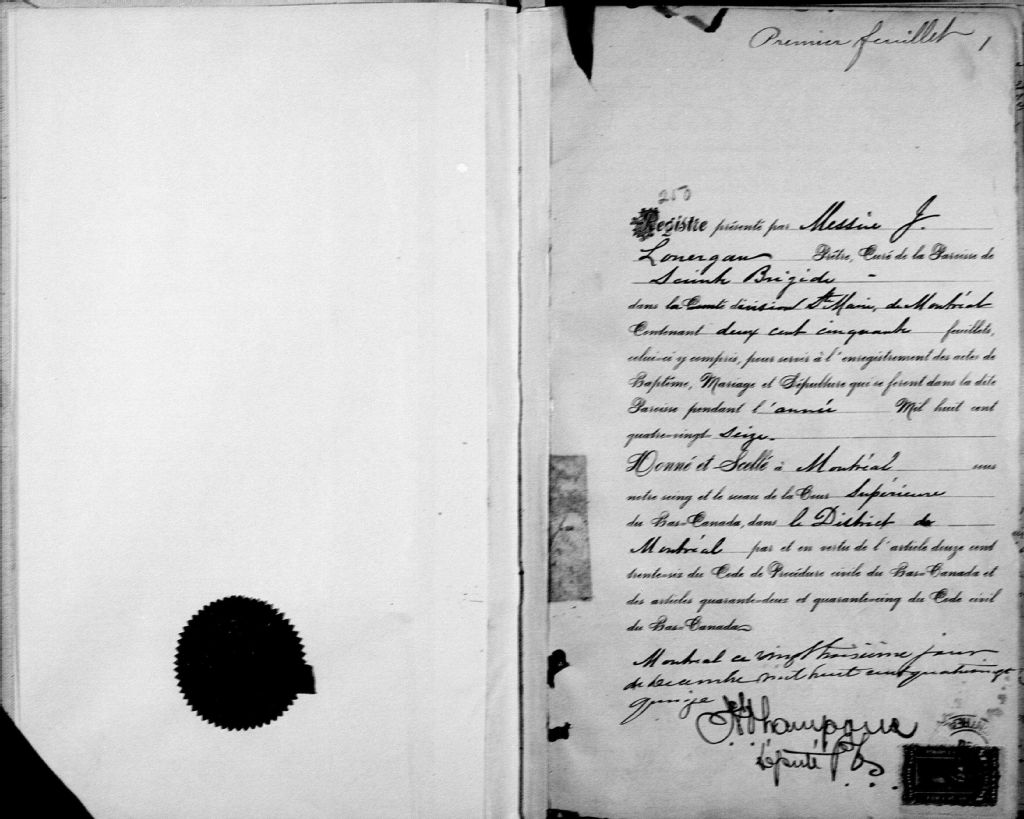 Premier feuillet 1
250
Registre présenté par Messire J.
Lonergan Prêtre, Curé de la Paroisse de
Sainte Brigide -
dans la Comté division Ste Marie, de Montréal
Contenant deux cent cinquante feuillets,
celui-ci y compris, pour servir à l'enregistrement des actes de
Baptême, Mariage et Sépulture qui se feront dans la dite
Paroisse pendant l'année Mil huit cent
quatre-vingt-seize.
Donné et Scellé à Montréal sous
notre seing et le sceau de la Cour Supérieure
du Bas-Canada, dans le District de
Montréal par et en vertu de l'article douze cent
trente-six du Code de Procédure civile du Bas-Canada et
des articles quarante-deux et quarante-cinq du Code civil
du Bas-Canada
Montréal ce vingt troisième jour
de décembre mil huit cent quatrevingt
quinze
Député P